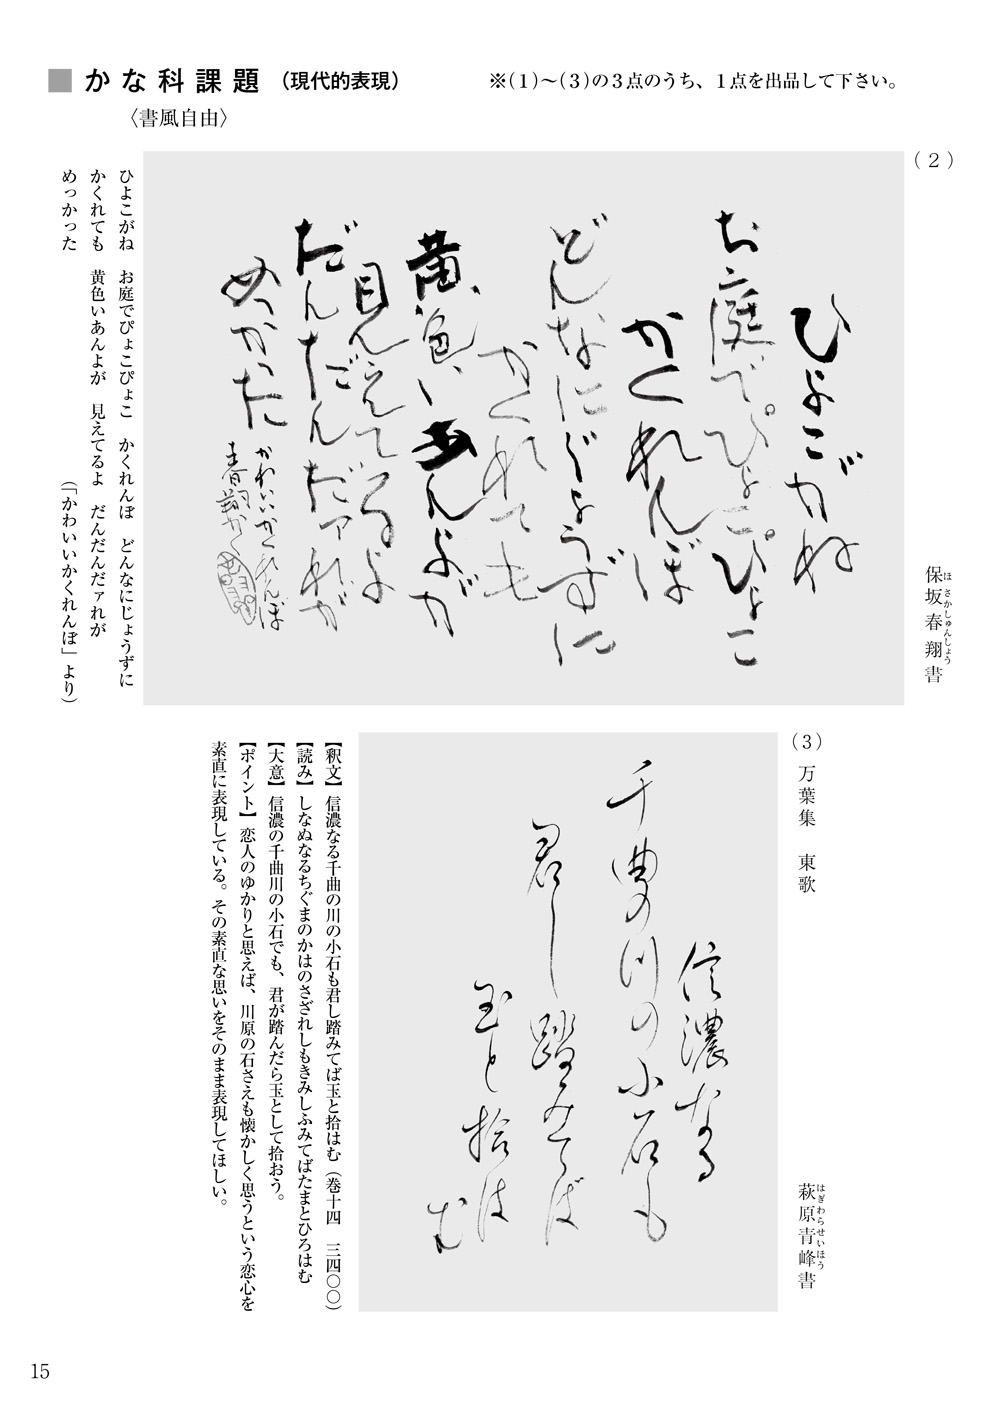 ■ かな科課題（現代的表現）
※（１）〜（３）の３点のうち、１点を出品して下さい。
〈書風自由〉
（２）
保坂春翔書
ほさかしゅんしょう
ひよこがね
お庭でぴょこぴょこ
かくれんぼ
どんなにじょうずに
かくれても
黄色いあんよが
見えてるよ
だんだんだァれが
めっかった
かわいいかくれんぼ
春翔かく
ひよこがね　お庭でぴょこぴょこ　かくれんぼ　どんなにじょうずに
かくれても　黄色いあんよが　見えてるよ　だんだんだァれが
めっかった　（「かわいいかくれんぼ」より）
（３）　万葉集　東歌
萩原青峰書
はぎわらせいほう
信濃なる
千曲の川の小石も
君し踏みてば
玉と拾は
む
【釈文】信濃なる千曲の川の小石も君し踏みてば玉と拾はむ（巻十四　三四〇〇）
【読み】しなぬなるちぐまのかはのさざれしもきみしふみてばたまとひろはむ
【大意】信濃の千曲川の小石でも、君が踏んだら玉として拾おう。
【ポイント】恋人のゆかりと思えば、川原の石さえも懐かしく思うという恋心を
素直に表現している。その素直な思いをそのまま表現してほしい。
15